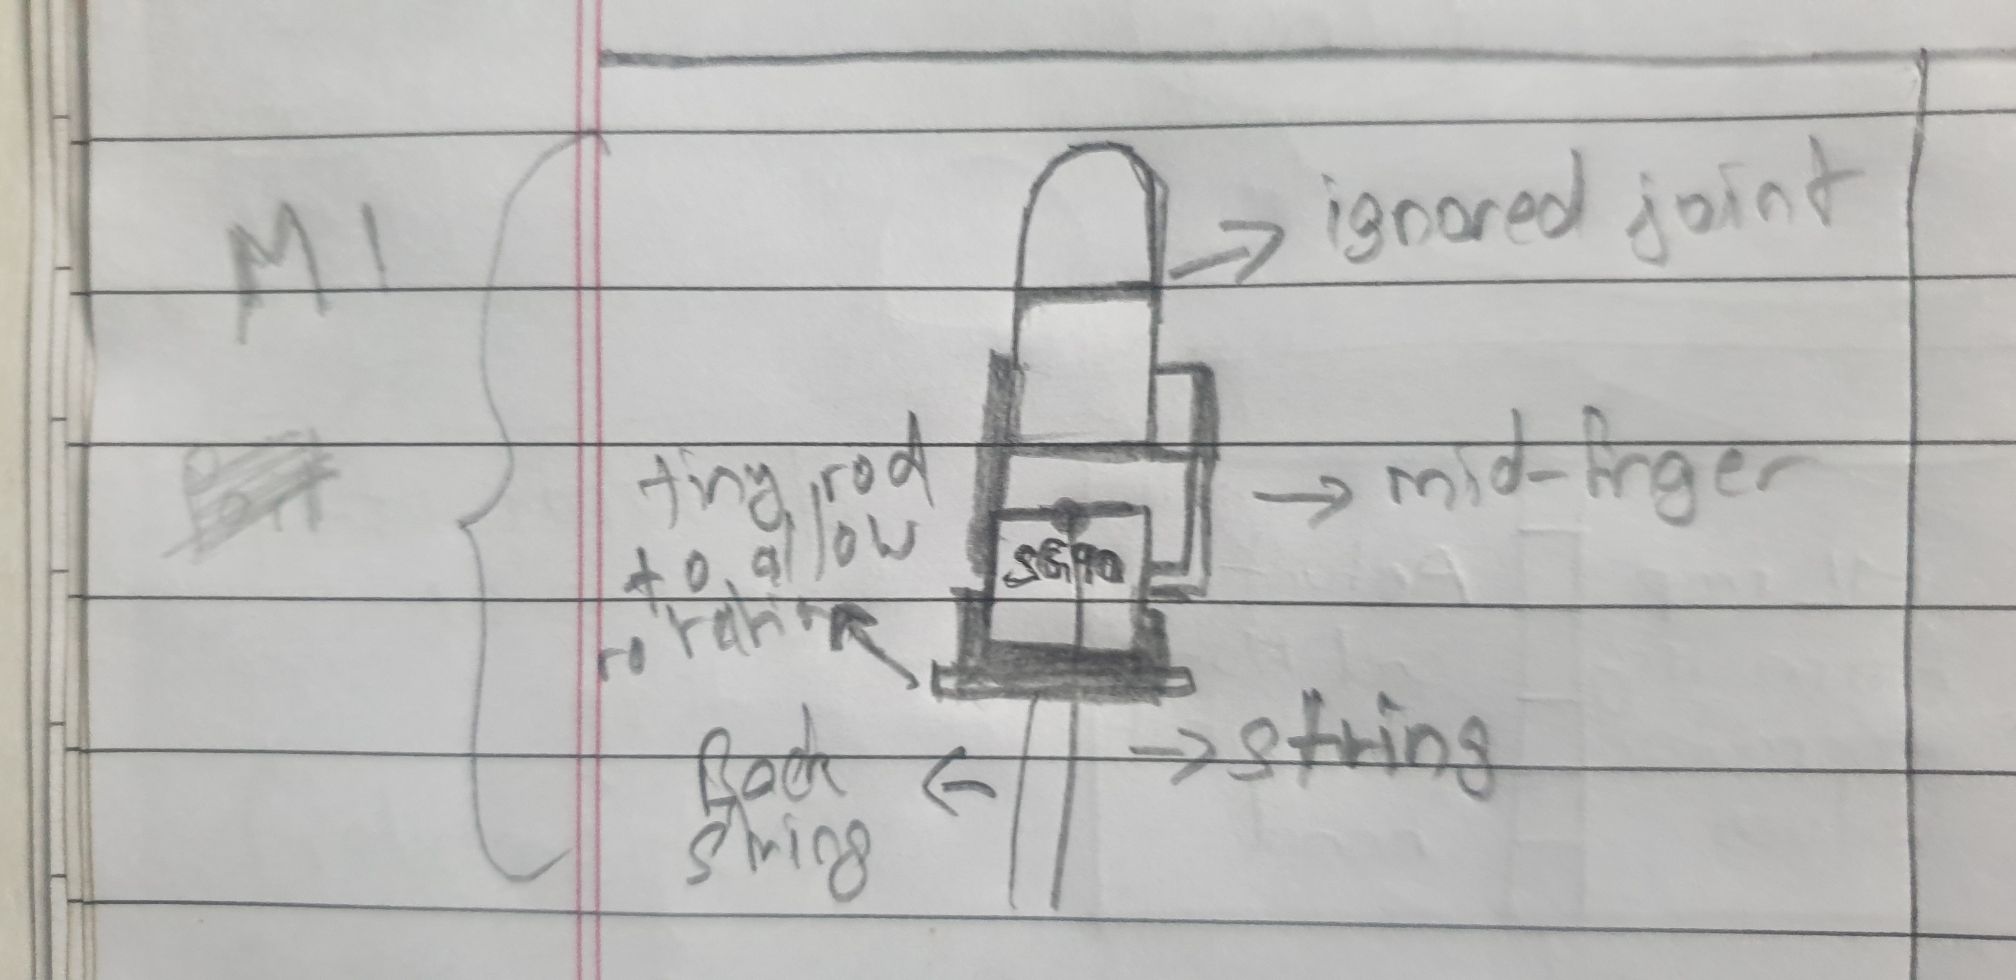 M1
ignored joint
tiny rod
to allow
mid-finger
string
Back
string